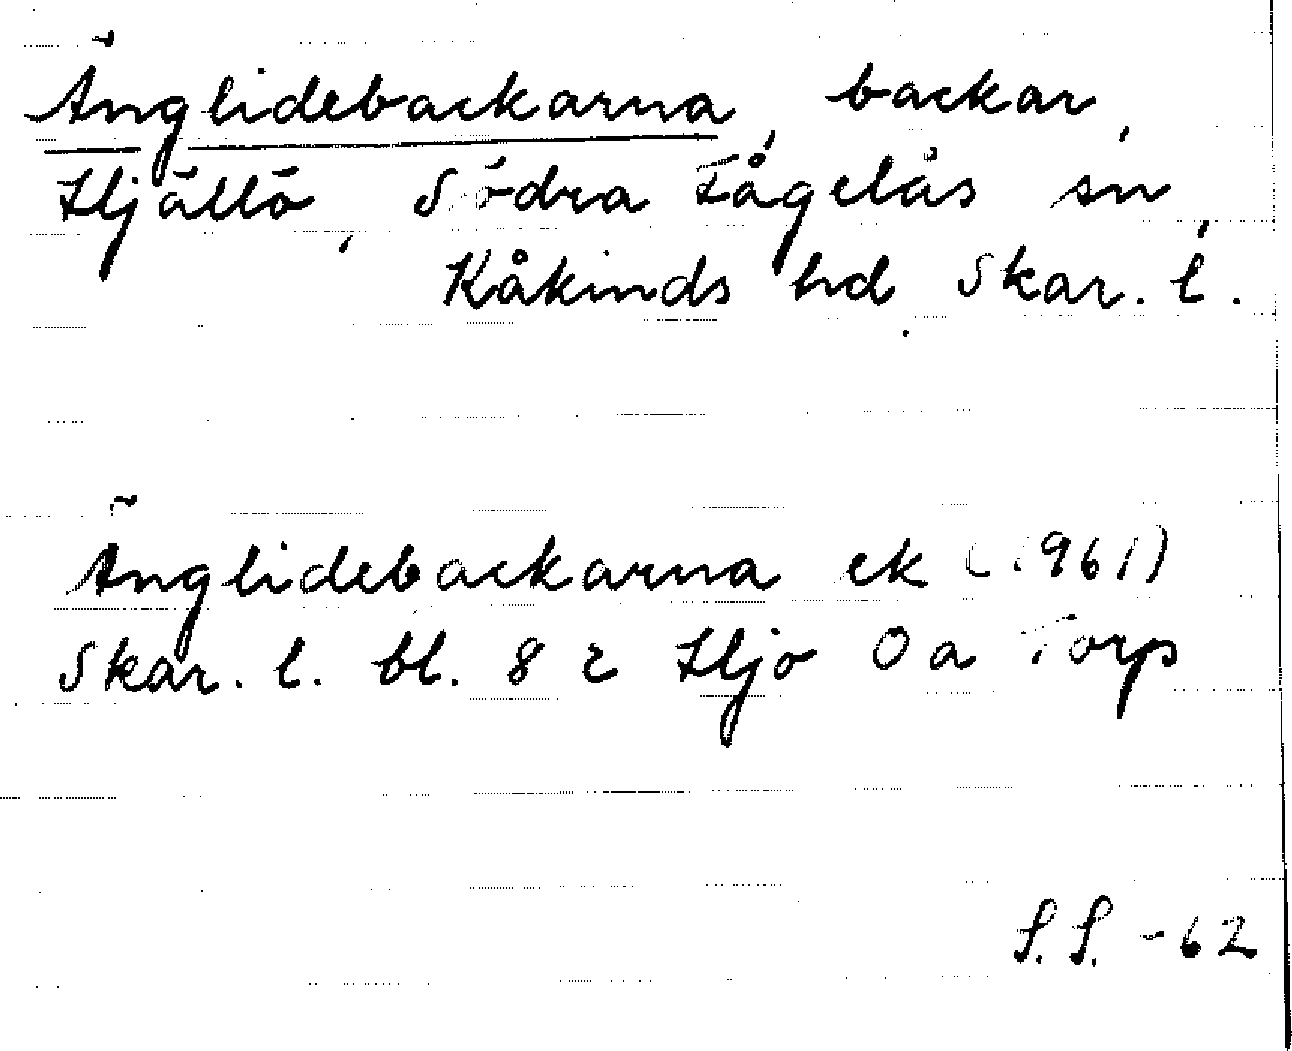 Änglidebackarna, backar,
Hjällö, Södra Fågelås sn,
Kåkinds hd Skar. l.
Änglidebackarna ek (1961)
Skar. l. bl. 82 Hjo Oa Torp
S.S. -62